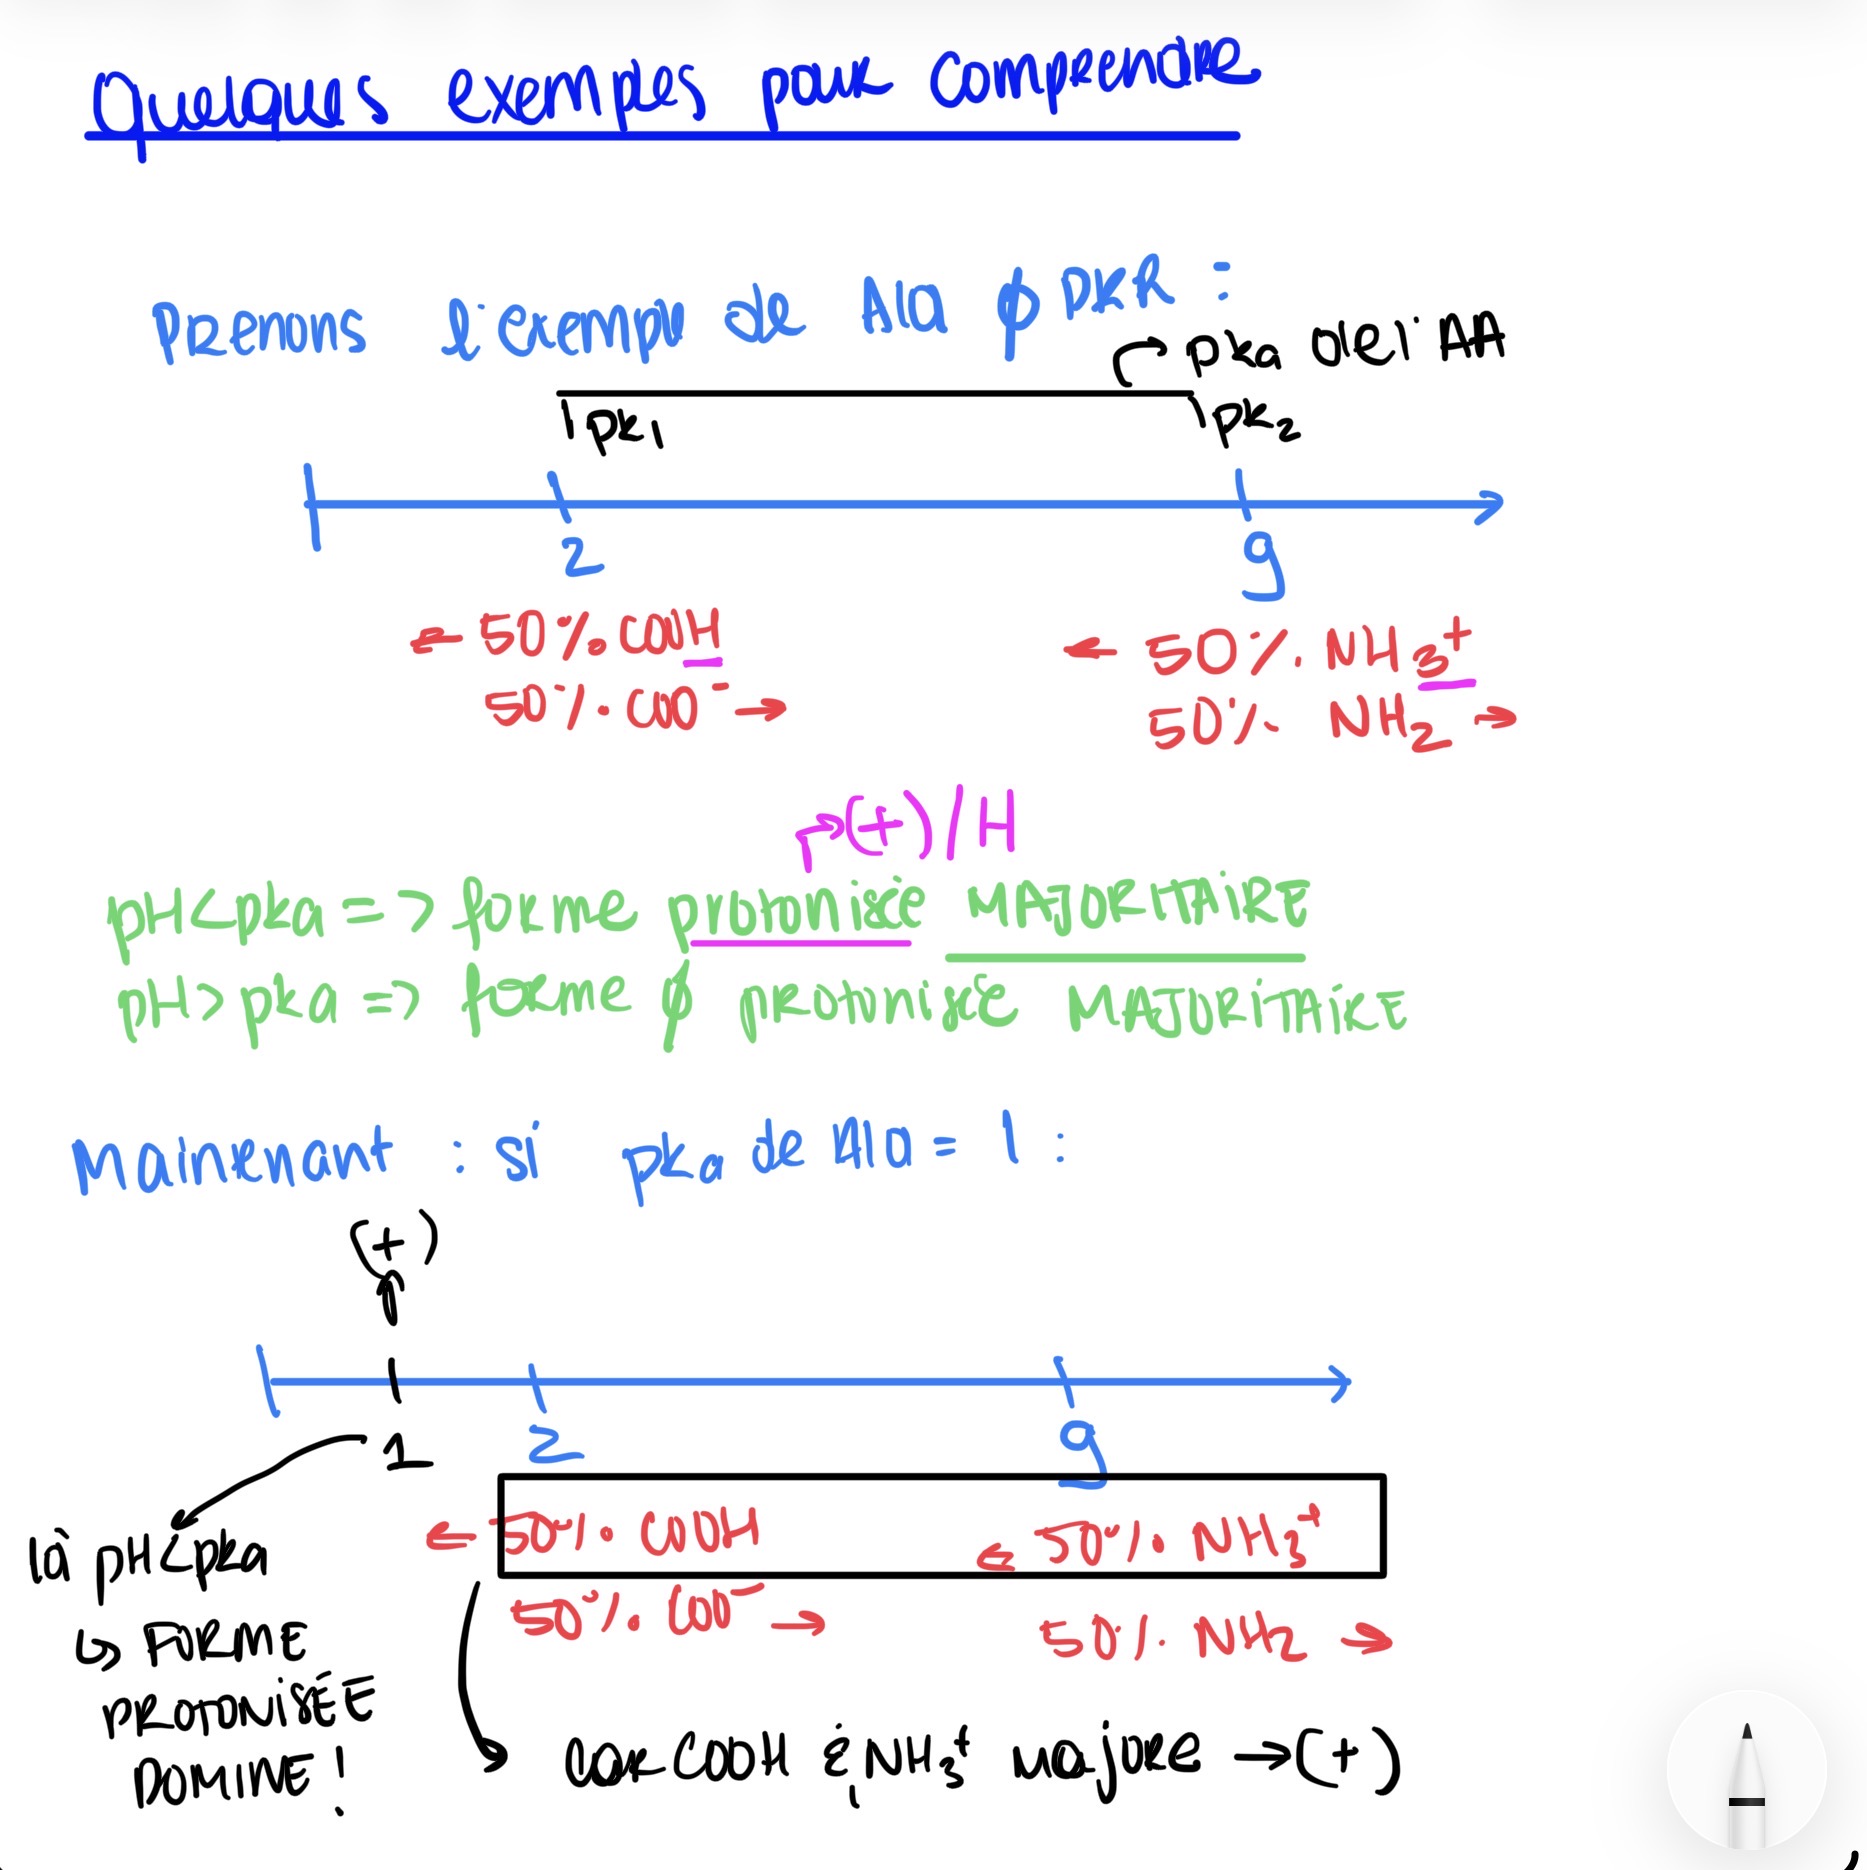 Quelques exemples pour comprendre
Prenons l'exemple de Ala ϕ pKR :
pka de l'AA
pk1 pk2
2 9
← 50%. COOH ← 50%. NH3+
50%. COO- → 50%. NH2 →
(+)/H
pH<pka => forme protonisée MAJORITAIRE
pH>pka => forme ϕ protonisée MAJORITAIRE
Maintenant : si pka de Ala = 1 :
(+)
1 2 9
← 50%. COOH ← 50%. NH3+
50%. COO- → 50%. NH2 →
là pH<pka
↳ FORME
PROTONISÉE
DOMINE !
car COOH & NH3+ majore →(+)